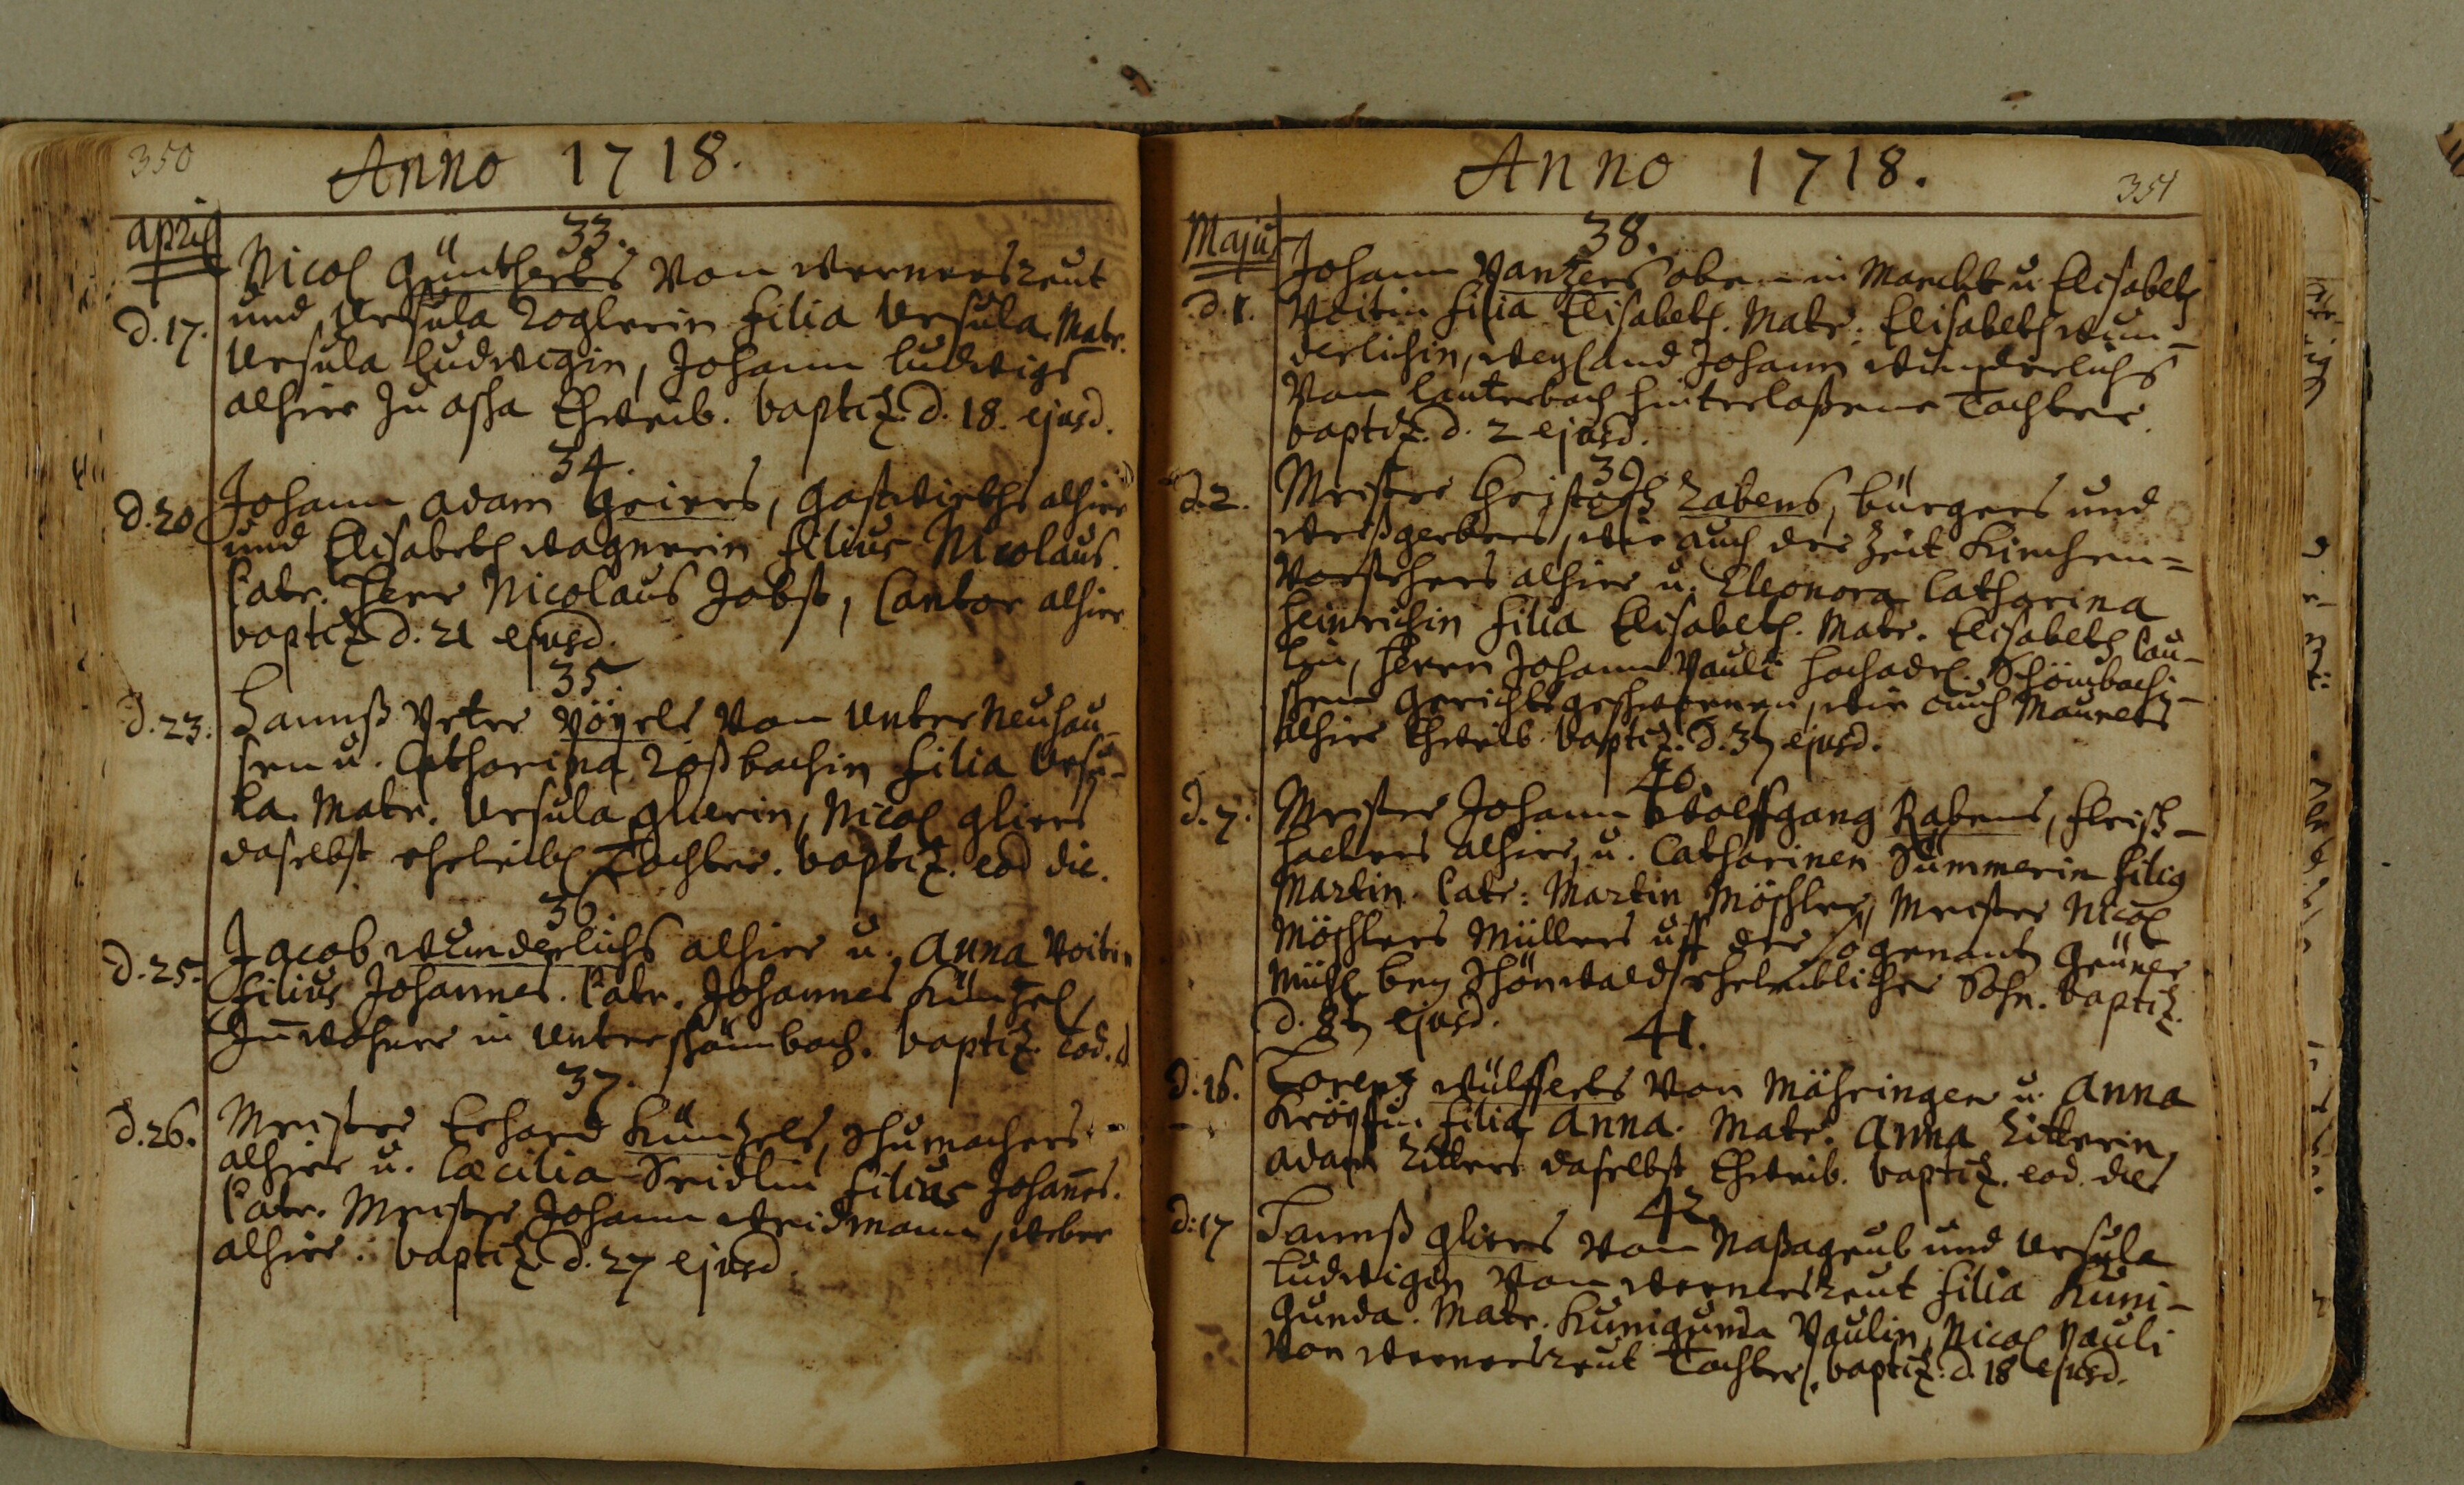 350
Anno 1718.
April
33.
Nicol Güntherts von Wernersreut
d. 17. und Ursula Roglerin filia Ursula. Matr.
Ursula Ludwigin, Johann Ludwigs
alhier zu Asch Eheweib. baptiz. d. 18. ejusd.
34.
d. 20 Johann Adam Geiers, Gastwirths alhier
und Elisabeth Wagnerin filius Nicolaus.
Patr. Herr Nicolaus Jobst, Cantor alhier
baptiz. d. 21 ejusd.
35.
d. 23. Hannß Peter Vögels von Unter Neuhau-
sen u. Catharina Roßbachin filia Ursu-
la. Matr. Ursula Glierin, Nicol Gliers
daselbst eheleibl. Tochter. baptiz. eod die.
36.
d. 25. Jacob Wunderlichs alhier u. Anna Voitin
filius Johannes. Patr. Johannes Künzel,
Inwohner in Unterschömbach. baptiz. eod. d
37.
d. 26. Meister Erhard Künzels, Schumachers
alhier u. Cæcilia Seidlin filius Johannes.
Patr. Meister Johann Weidmann, Weber
alhier. baptiz. d. 27 ejusd.
Anno 1718.
351
Majus
38.
Johann Panzers oben in Marckt u. Elisabeth
d. 1. Voitin filia Elisabeth. Matr. Elisabeth Wun-
derlichin, weyland Johann Wunderlichs
von Lauterbach hinterlaßene Tochter.
baptiz. d. 2 ejusd.
39
d. 2. Meister Christoph Rabens, bürgers und
Weißgerbers, wie auch der Zeit Kirchen-
Vorstehers alhier u. Eleonora Catharina
Heinrichin filia Elisabeth. Matr. Elisabeth Pau-
lin, Herrn Johann Pauli Hochadl. Schömbachi-
schen Gerichtsgeschwornen, wie auch Maurers
alhier Eheweib. baptiz. d. 3ten ejusd.
40.
d. 7. Meister Johann Wolffgang Rabens, Fleisch-
hackers alhier, u. Catharinen Sümmerin filig
Martin. Patr: Martin Möschler, Meister Nicol
Möschlers Müllers uff der so genannten Grüner
Mühl bey Schönwald eheleiblicher Sohn. baptiz.
d. 8ten ejusd.
41.
d. 16. Lorenz Wülfferts von Mähringen u. Anna
filia Anna. Matr. Anna Zitterin,
Adam Zitters daselbst Eheweib. baptiz. eod. die
42.
d: 17 Hannß Gliers von Naßagrub und Ursula
Ludwigin von Wernersreut filia Kuni-
gunda. Matr. Kunigunda Paulin, Nicol Pauli
von Wernersreut Tochter. baptiz. d. 18 ejusd.